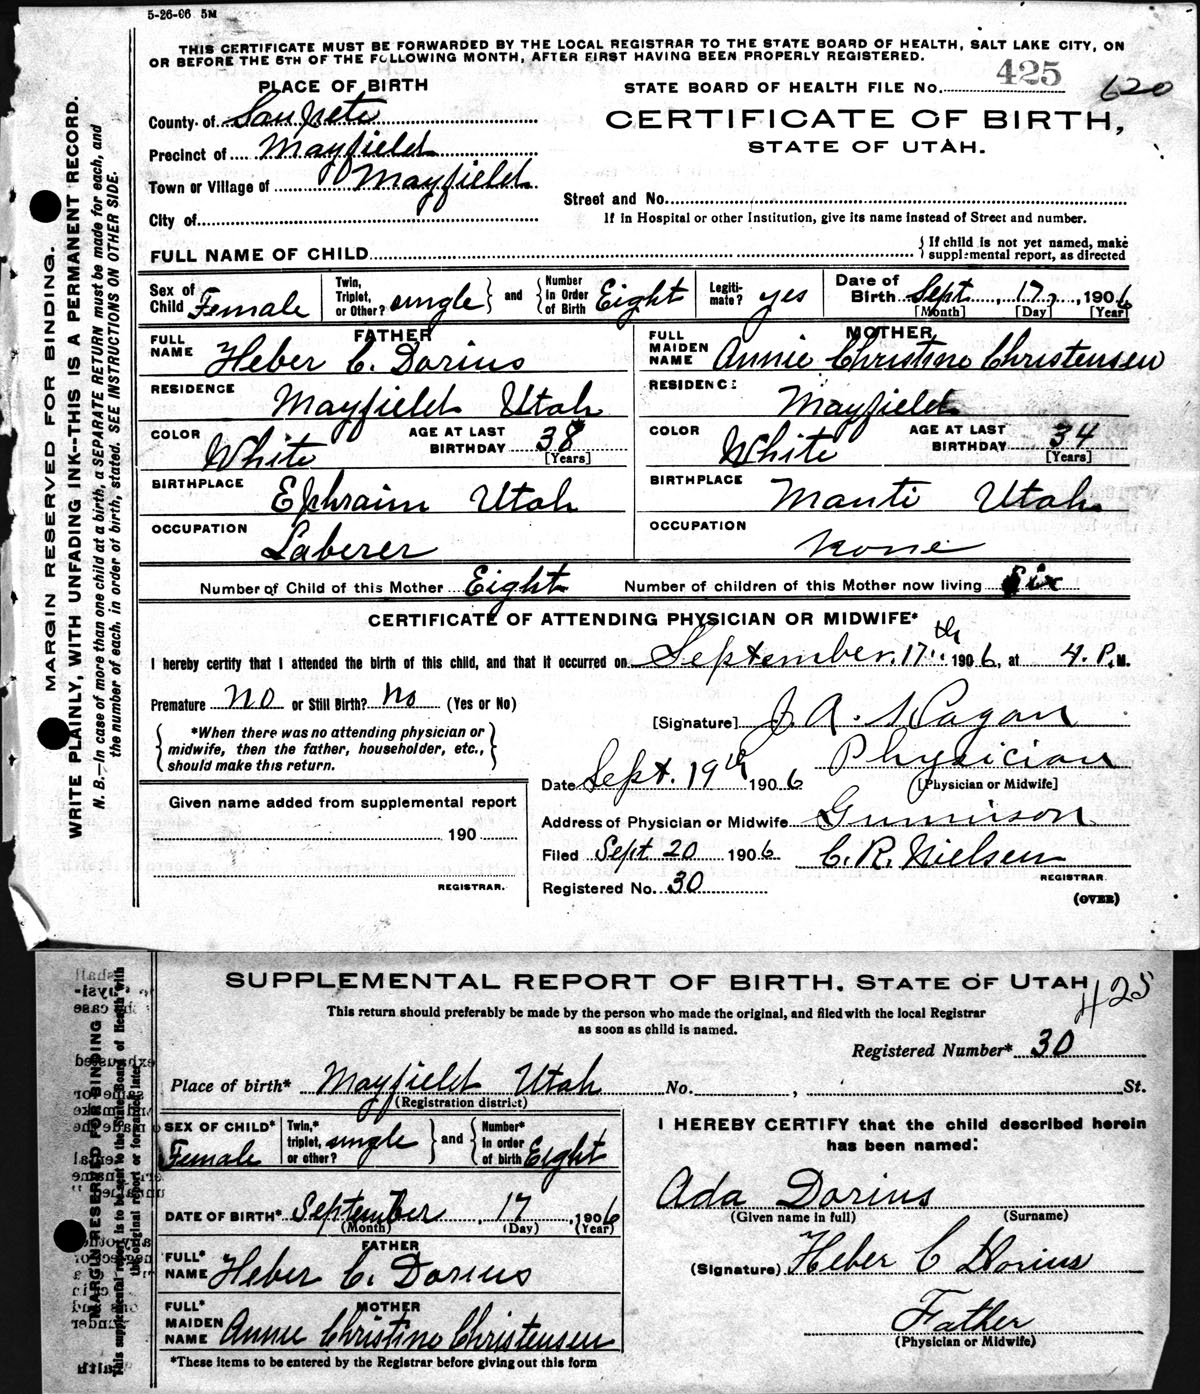 5-26-06 5M
THIS CERTIFICATE MUST BE FORWARDED BY THE LOCAL REGISTRAR TO THE STATE BOARD OF HEALTH, SALT LAKE CITY, ON
OR BEFORE THE 5TH OF THE FOLLOWING MONTH, AFTER FIRST HAVING BEEN PROPERLY REGISTERED.
PLACE OF BIRTH
STATE BOARD OF HEALTH FILE No. 425 620
County of Sanpete
CERTIFICATE OF BIRTH,
STATE OF UTAH.
Precinct of Mayfield
Town or Village of Mayfield
Street and No.
City of
If in Hospital or other Institution, give its name instead of Street and number.
FULL NAME OF CHILD
{ If child is not yet named, make
supplemental report, as directed
Sex of Child Female
Twin, Triplet, or Other? single } and { Number in Order of Birth Eight
Legiti-mate? yes
Date of Birth Sept, 17, 1906
[Month] [Day] [Year]
FATHER
FULL NAME Heber C. Dorius
MOTHER
FULL MAIDEN NAME Annie Christine Christensen
RESIDENCE Mayfield Utah
RESIDENCE Mayfield
COLOR White AGE AT LAST BIRTHDAY 38 [Years]
COLOR White AGE AT LAST BIRTHDAY 34 [Years]
BIRTHPLACE Ephraim Utah
BIRTHPLACE Manti Utah
OCCUPATION Laberer
OCCUPATION None
Number of Child of this Mother Eight Number of children of this Mother now living Six
CERTIFICATE OF ATTENDING PHYSICIAN OR MIDWIFE*
I hereby certify that I attended the birth of this child, and that it occurred on September 17th 1906, at 4. P.M.
Premature No or Still Birth? No (Yes or No)
[Signature] J. A. Hagan
*When there was no attending physician or
midwife, then the father, householder, etc.,
should make this return.
Physician
[Physician or Midwife]
Date Sept. 19th 1906
Given name added from supplemental report
190
REGISTRAR.
Address of Physician or Midwife Gunnison
Filed Sept 20 1906 C. R. Nielsen
REGISTRAR.
Registered No. 30
(OVER)
MARGIN RESERVED FOR BINDING.
WRITE PLAINLY, WITH UNFADING INK--THIS IS A PERMANENT RECORD.
N. B.—In case of more than one child at a birth, a SEPARATE RETURN must be made for each, and
the number of each, in order of birth, stated. SEE INSTRUCTIONS ON OTHER SIDE.
SUPPLEMENTAL REPORT OF BIRTH. STATE OF UTAH
425
This return should preferably be made by the person who made the original, and filed with the local Registrar
as soon as child is named.
Registered Number* 30
Place of birth* Mayfield Utah No. , St.
(Registration district)
SEX OF CHILD* Female
Twin,* triplet, or other? single } and { Number* in order of birth Eight
DATE OF BIRTH* September, 17, 1906
(Month) (Day) (Year)
FATHER
FULL* NAME Heber C. Dorius
MOTHER
FULL* MAIDEN NAME Annie Christine Christensen
*These items to be entered by the Registrar before giving out this form
I HEREBY CERTIFY that the child described herein
has been named:
Ada Dorius
(Given name in full) (Surname)
(Signature) Heber C Dorius
Father
(Physician or Midwife)
MARGIN RESERVED FOR BINDING
This supplemental report is to be sent to the State Board of Health with
the original report or forwarded later